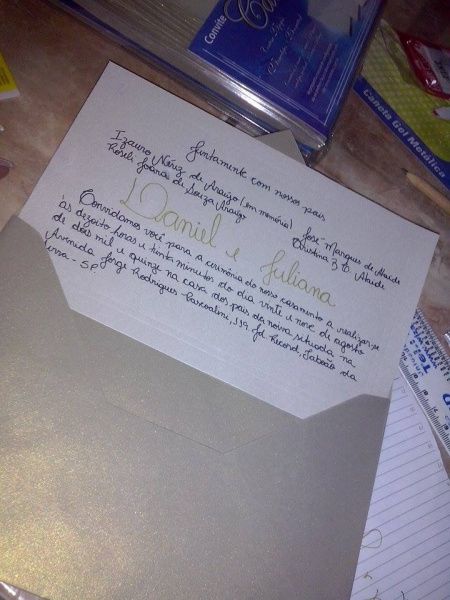 Convite
Caneta Gel Metálica
Juntamente com nossos pais
Izauro Néruz de Araújo (em memória) José Marques de Ataide
Roseli Joana de Souza Araújo Cristina B. O. Ataide
Daniel e Juliana
Convidamos você para a cerimônia do nosso casamento a realizar-se
às dezoito horas e trinta minutos do dia vinte e nove de agosto
de dois mil e quinze na casa dos pais da noiva situada na
Avenida Jorge Rodrigues Pascoalini, 119, Jd. Record, Taboão da
Serra - SP